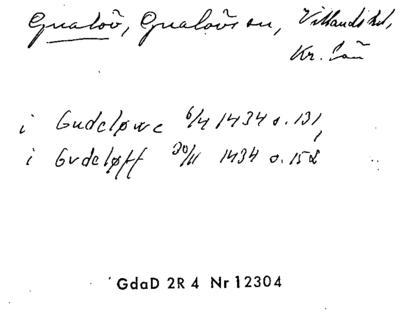 Gualöv, Gualövs sn, Villands hd,
Kr. län
i Gudeløwe 6/4 1434 s. 131,
i Gvdeløff 30/11 1434 s. 158
GdaD 2R4 Nr 12304